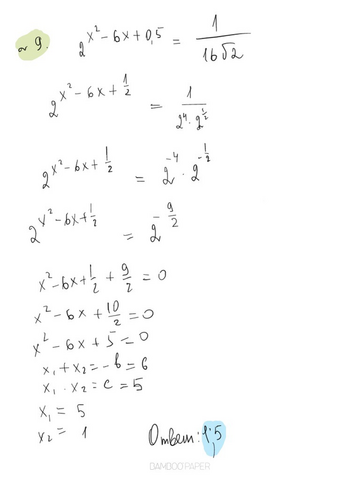 ~ 9. 2^{x² - 6x + 0,5} = \frac{1}{16\sqrt{2}}
2^{x² - 6x + \frac{1}{2}} = \frac{1}{2^4 \cdot 2^{\frac{1}{2}}}
2^{x² - 6x + \frac{1}{2}} = 2^{-4} \cdot 2^{-\frac{1}{2}}
2^{x² - 6x + \frac{1}{2}} = 2^{-\frac{9}{2}}
x² - 6x + \frac{1}{2} + \frac{9}{2} = 0
x² - 6x + \frac{10}{2} = 0
x² - 6x + 5 = 0
x₁ + x₂ = -b = 6
x₁ · x₂ = c = 5
x₁ = 5
x₂ = 1
Ответ: 1;5
BAMBOO PAPER